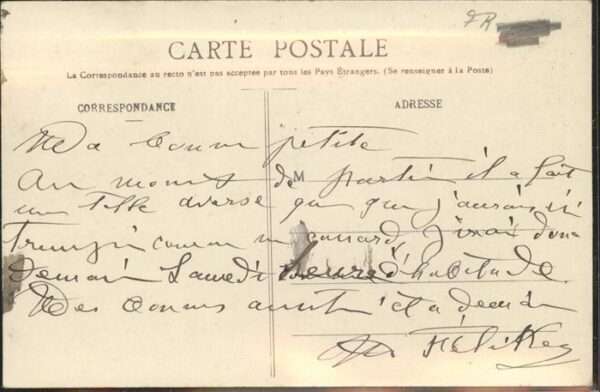 FR
CARTE POSTALE
La Correspondance au recto n'est pas acceptée par tous les Pays Étrangers. (Se renseigner à la Poste)
CORRESPONDANCE
ADRESSE
M
Ma bonne petite
Au moment de partir il a fait
une telle averse que j'aurais été
comme un canard j'irai donc
demain Samedi heure d'habitude.
Mes bons et à demain